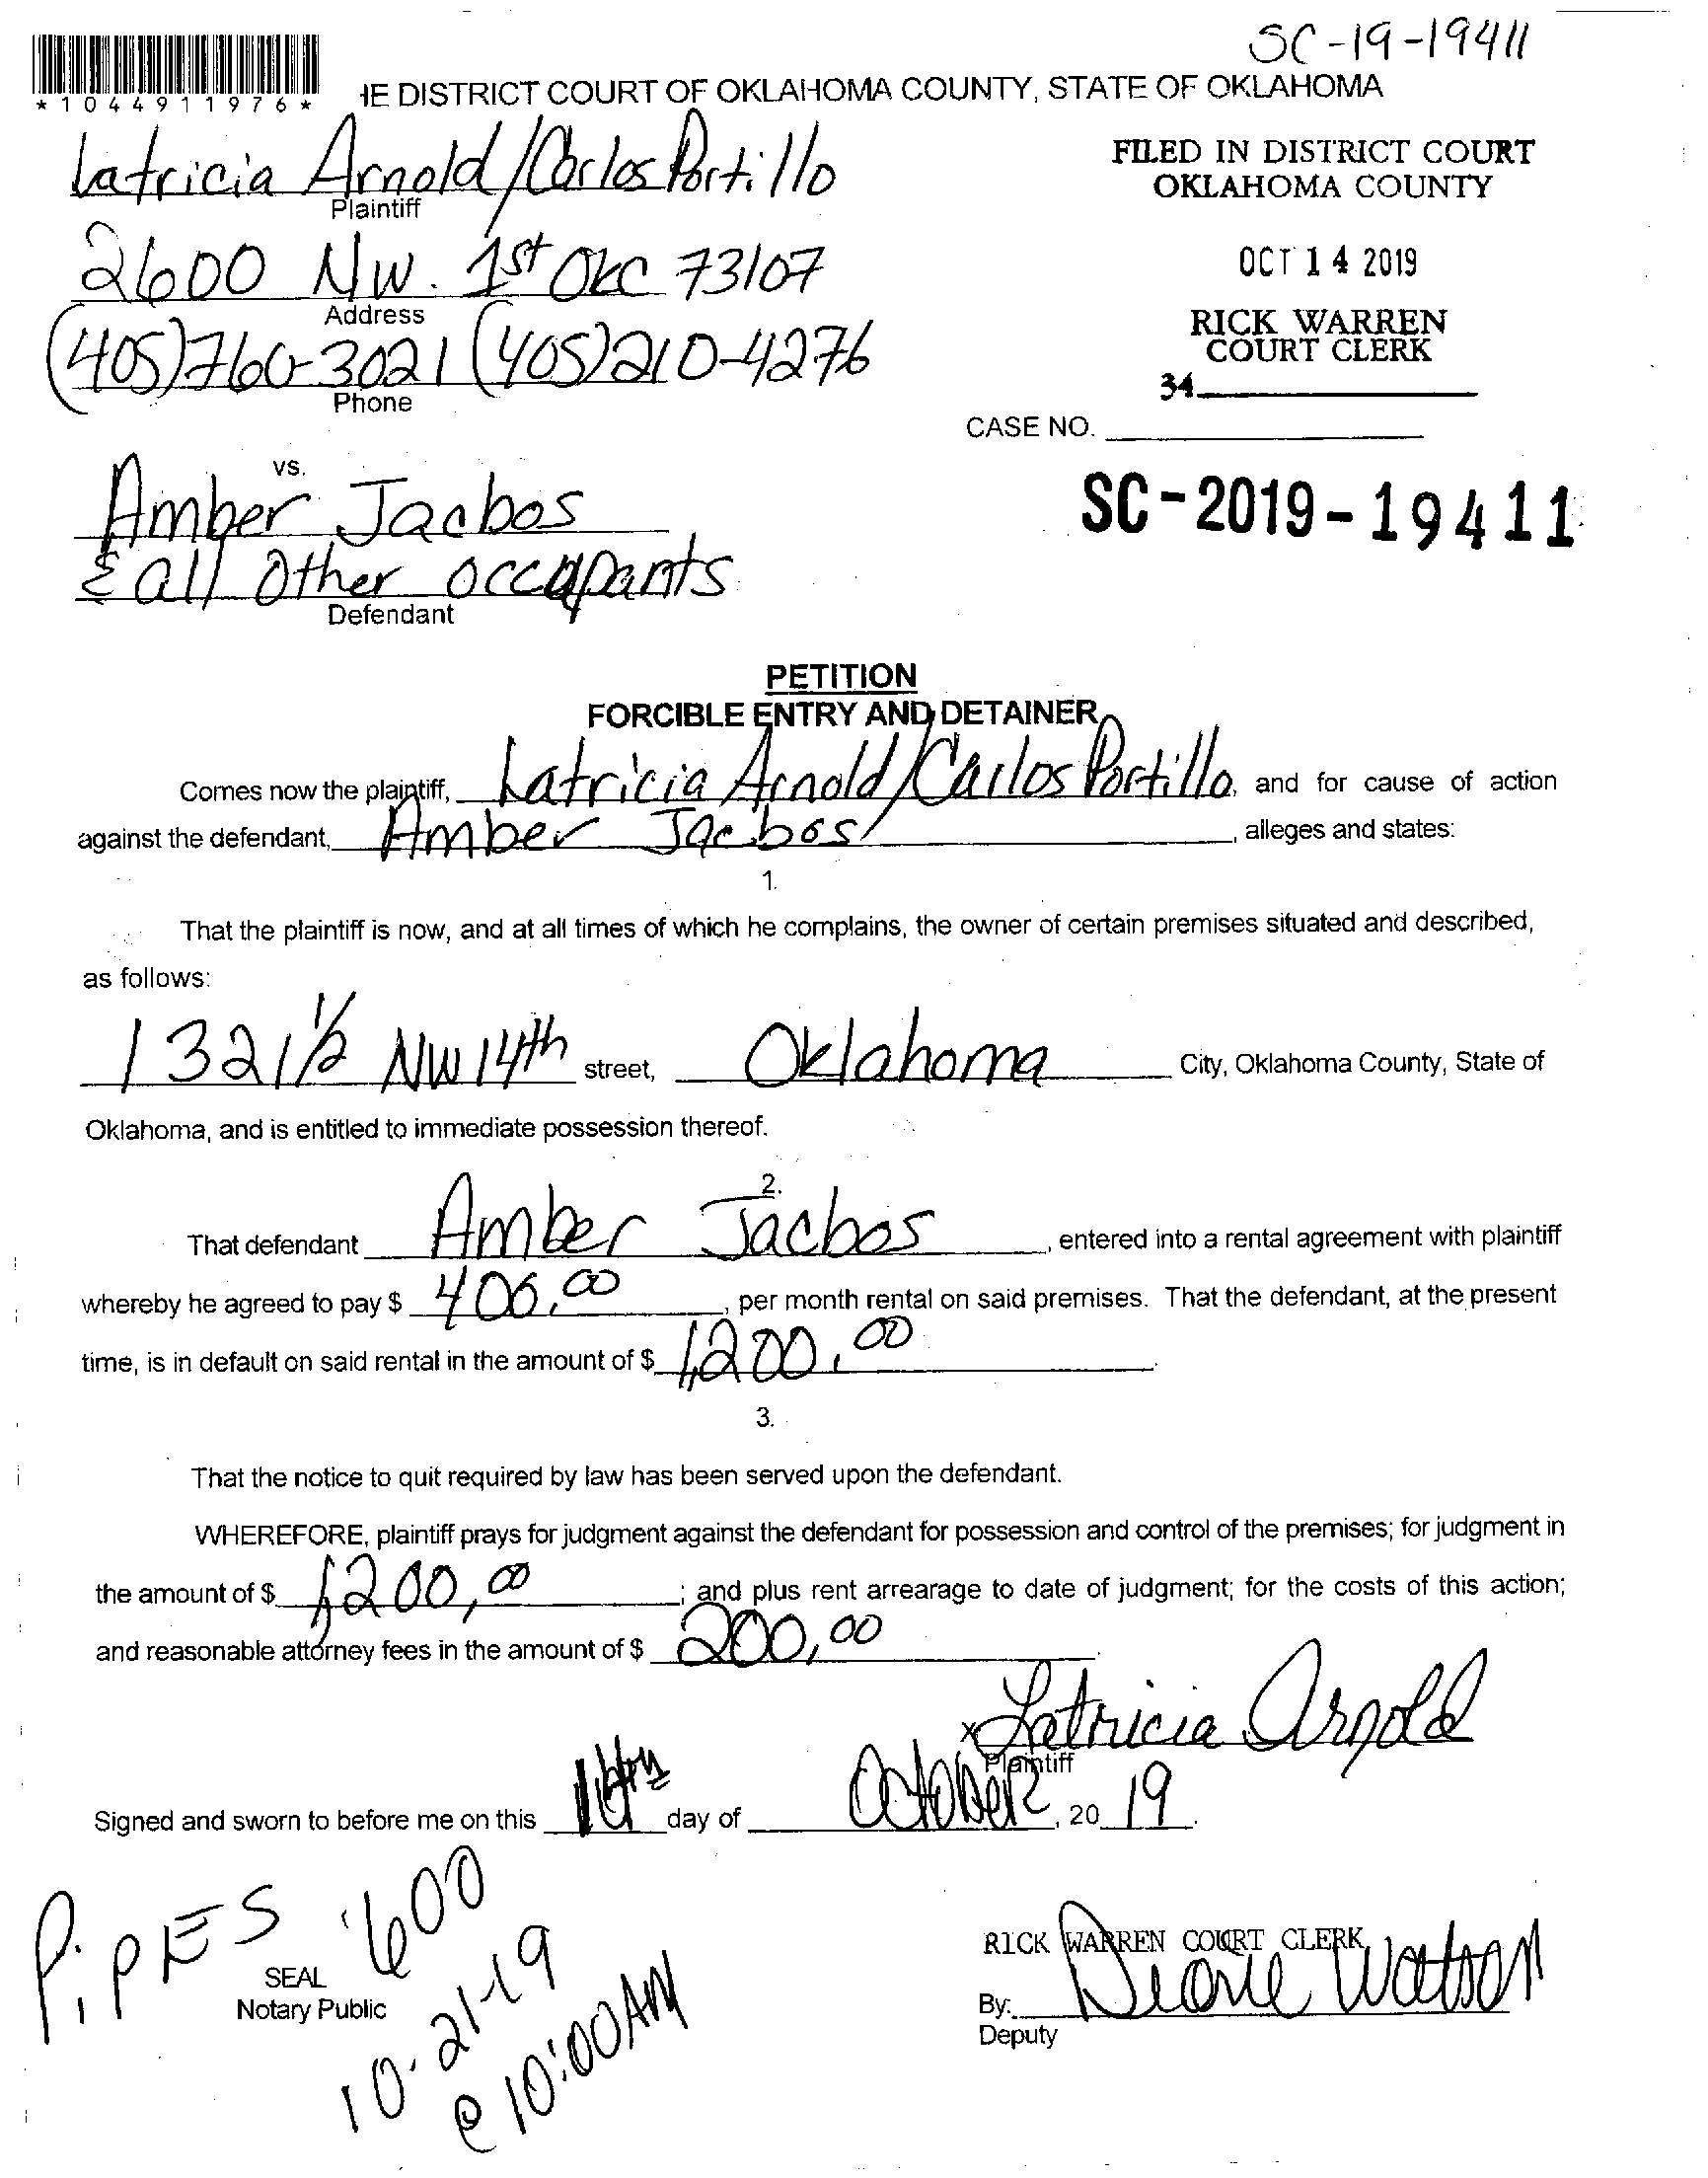 SC-19-19411
*1044911976*
IE DISTRICT COURT OF OKLAHOMA COUNTY, STATE OF OKLAHOMA
Latricia Arnold/Carlos Portillo
Plaintiff
FILED IN DISTRICT COURT
OKLAHOMA COUNTY
2600 NW. 1st OKC 73107
Address
OCT 14 2019
RICK WARREN
COURT CLERK
(405)760-3021 (405)210-4276
Phone
34
CASE NO.
vs.
Amber Jacbos
SC-2019-19411
& all other occupants
Defendant
PETITION
FORCIBLE ENTRY AND DETAINER
Comes now the plaintiff, Latricia Arnold/Carlos Portillo, and for cause of action
against the defendant, Amber Jacbos, alleges and states:
1.
That the plaintiff is now, and at all times of which he complains, the owner of certain premises situated and described,
as follows:
1321 1/2 NW 14th street, Oklahoma City, Oklahoma County, State of
Oklahoma, and is entitled to immediate possession thereof.
2.
That defendant Amber Jacbos, entered into a rental agreement with plaintiff
whereby he agreed to pay $ 400.00, per month rental on said premises. That the defendant, at the present
time, is in default on said rental in the amount of $ 1,200.00.
3.
That the notice to quit required by law has been served upon the defendant.
WHEREFORE, plaintiff prays for judgment against the defendant for possession and control of the premises; for judgment in
the amount of $ 1,200,00; and plus rent arrearage to date of judgment; for the costs of this action;
and reasonable attorney fees in the amount of $ 200,00.
x Latricia Arnold
Plaintiff
Signed and sworn to before me on this day of October, 20 19.
PipES 600
SEAL
Notary Public
10-21-19
@ 10:00AM
RICK WARREN COURT CLERK
By: Diane Watson
Deputy